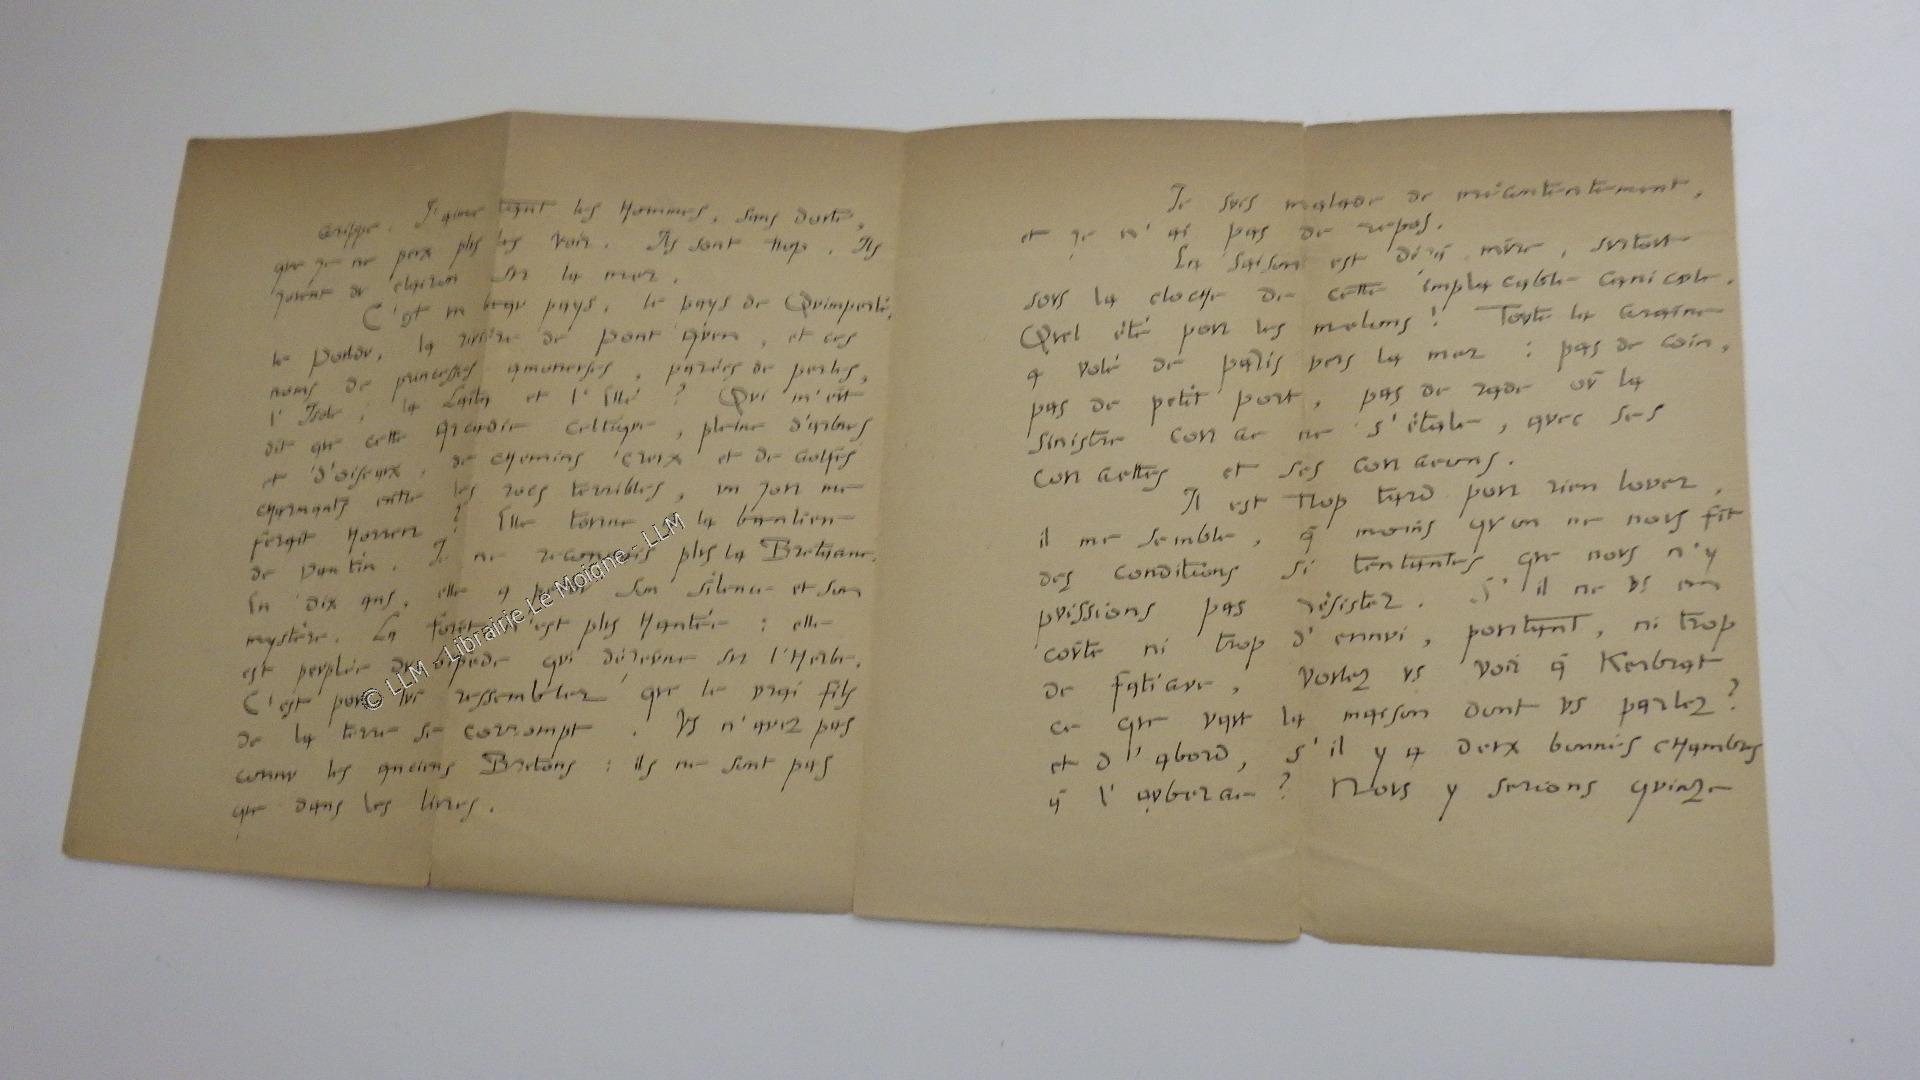 grippe. J'aime tant les Hommes, sans doute,
que je ne peux plus les voir. Ils sont trop. Ils
jouent du clairon sur la mer.
C'est un beau pays, le pays de Quimperlé,
le Pouldu, la rivière de Pont Aven, et ces
noms de princesses amoureuses, parées de perles,
l'Isole, la Laïta et l'Ellé ? Qui m'eût
dit que cette Arcadie celtique, pleine d'arbres
et d'oiseaux, de chemins creux et de golfes
charmants entre les rocs terribles, un jour me
ferait Horreur ? Elle tourne à la banlieue
de Pantin. Je ne reconnais plus la Bretagne.
En dix ans, elle a perdu son silence et son
mystère. La forêt n'est plus Hantée : elle
est peuplée du bipède qui déjeune sur l'Herbe.
C'est pour lui ressembler que le vrai fils
de la terre se corrompt. Vs n'avez pas
connu les anciens Bretons : ils ne sont pas
que dans les livres.
Je suis malade de mécontentement,
et je n'ai pas de repos.
La saison est déjà mûre, surtout
sous la cloche de cette implacable canicule.
Quel été pour les melons ! Toute la graine
a volé de Paris vers la mer : pas de coin,
pas de petit port, pas de rade où la
sinistre courge ne s'étale, avec ses
courgettes et ses courgeons.
Il est trop tard pour rien louer,
il me semble, à moins qu'on ne nous fît
des conditions si tentantes que nous n'y
puissions pas résister. S'il ne vs en
coûte ni trop d'ennui, pourtant, ni trop
de fatigue, voulez vs voir à Kerbrat
ce que vaut la maison dont vs parlez ?
et d'abord, s'il y a deux bonnes chambres
à l'auberge ? Nous y serions quinze
© LLM - Librairie Le Moigne - LLM